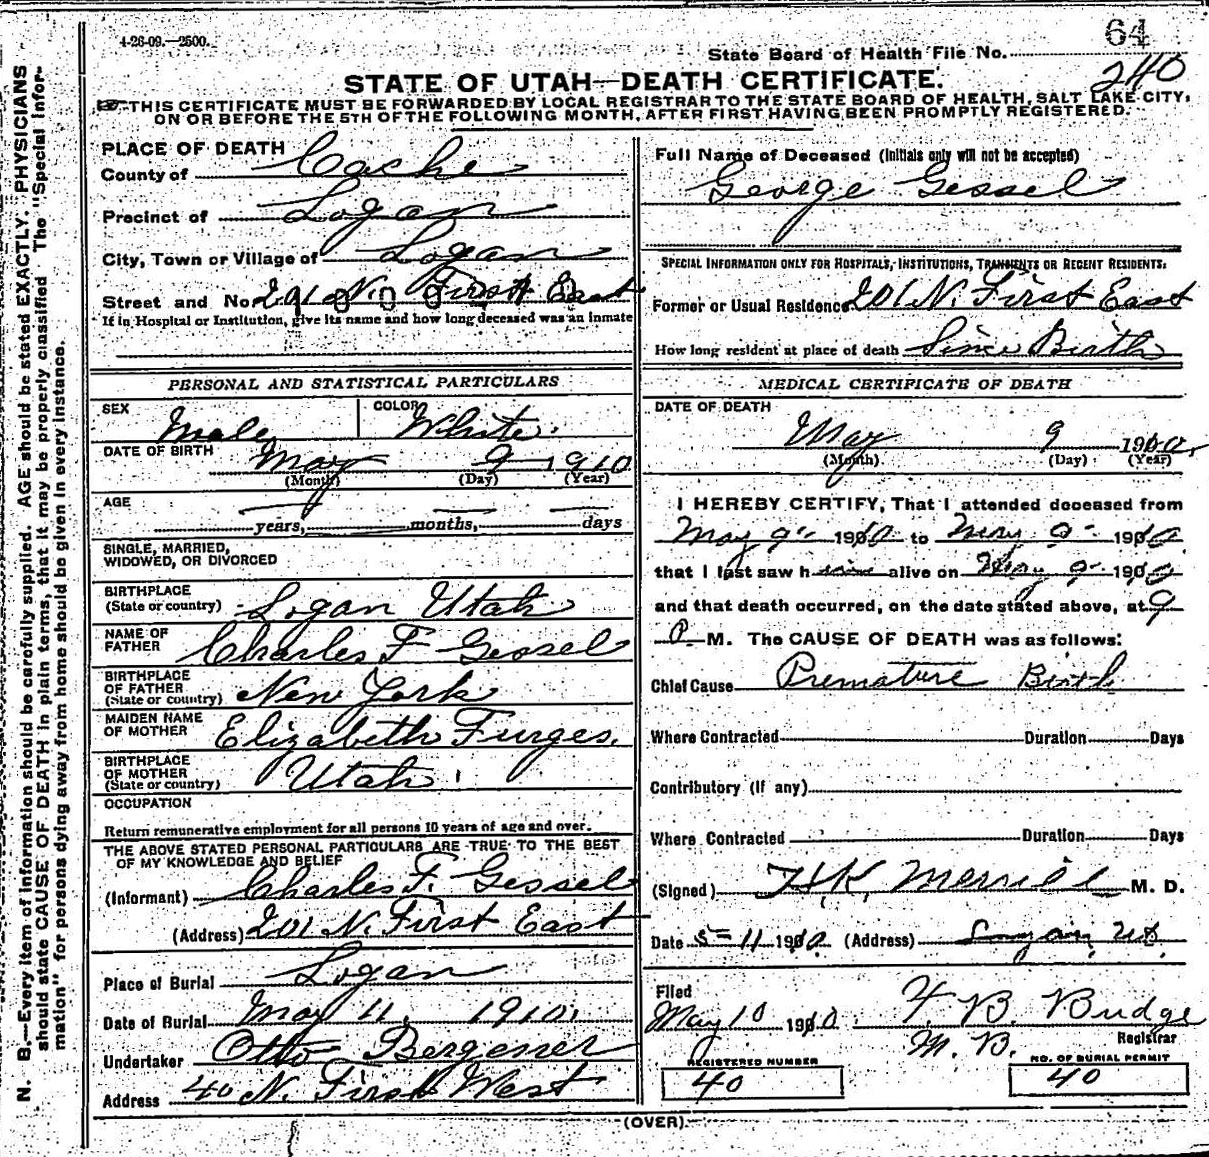 4-26-09.—2500.
64
State Board of Health File No.
240
STATE OF UTAH—DEATH CERTIFICATE.
THIS CERTIFICATE MUST BE FORWARDED BY LOCAL REGISTRAR TO THE STATE BOARD OF HEALTH, SALT LAKE CITY,
ON OR BEFORE THE 5TH OF THE FOLLOWING MONTH, AFTER FIRST HAVING BEEN PROMPTLY REGISTERED.
N. B.—Every item of information should be carefully supplied. AGE should be stated EXACTLY. PHYSICIANS
should state CAUSE OF DEATH in plain terms, that it may be properly classified. The "Special Infor-
mation" for persons dying away from home should be given in every instance.
PLACE OF DEATH
County of Cache
Precinct of Logan
City, Town or Village of Logan
Street and No. 201 N. First East
If in Hospital or Institution, give its name and how long deceased was an inmate
PERSONAL AND STATISTICAL PARTICULARS
SEX Male COLOR White.
DATE OF BIRTH May 9 1910
(Month) (Day) (Year)
AGE
years, months, days
SINGLE, MARRIED,
WIDOWED, OR DIVORCED
BIRTHPLACE
(State or country) Logan Utah
NAME OF
FATHER Charles F Gessel
BIRTHPLACE
OF FATHER
(State or country) New York
MAIDEN NAME
OF MOTHER Elizabeth Furges.
BIRTHPLACE
OF MOTHER
(State or country) Utah
OCCUPATION
Return remunerative employment for all persons 10 years of age and over.
THE ABOVE STATED PERSONAL PARTICULARS ARE TRUE TO THE BEST
OF MY KNOWLEDGE AND BELIEF
(Informant) Charles F. Gessel
(Address) 201 N. First East
Place of Burial Logan
Date of Burial May 11, 1910.
Undertaker Otto
Address 40 N. First West
Full Name of Deceased (Initials only will not be accepted)
George Gessel
SPECIAL INFORMATION ONLY FOR HOSPITALS, INSTITUTIONS, TRANSIENTS OR RECENT RESIDENTS.
Former or Usual Residence 201 N. First East
How long resident at place of death Since Birth
MEDICAL CERTIFICATE OF DEATH
DATE OF DEATH
May 9 1910.
(Month) (Day) (Year)
I HEREBY CERTIFY, That I attended deceased from
May 9 1910 to May 9 1910
that I last saw him alive on May 9 1910
and that death occurred, on the date stated above, at 9
P M. The CAUSE OF DEATH was as follows:
Chief Cause Premature Birth
Where Contracted Duration Days
Contributory (If any)
Where Contracted Duration Days
(Signed) H.K. Merrill M. D.
Date 5-11 1910 (Address) Logan Ut
Filed
May 10 1910. F. B. Budge
M. B. Registrar
REGISTERED NUMBER NO. OF BURIAL PERMIT
40 40
(OVER)